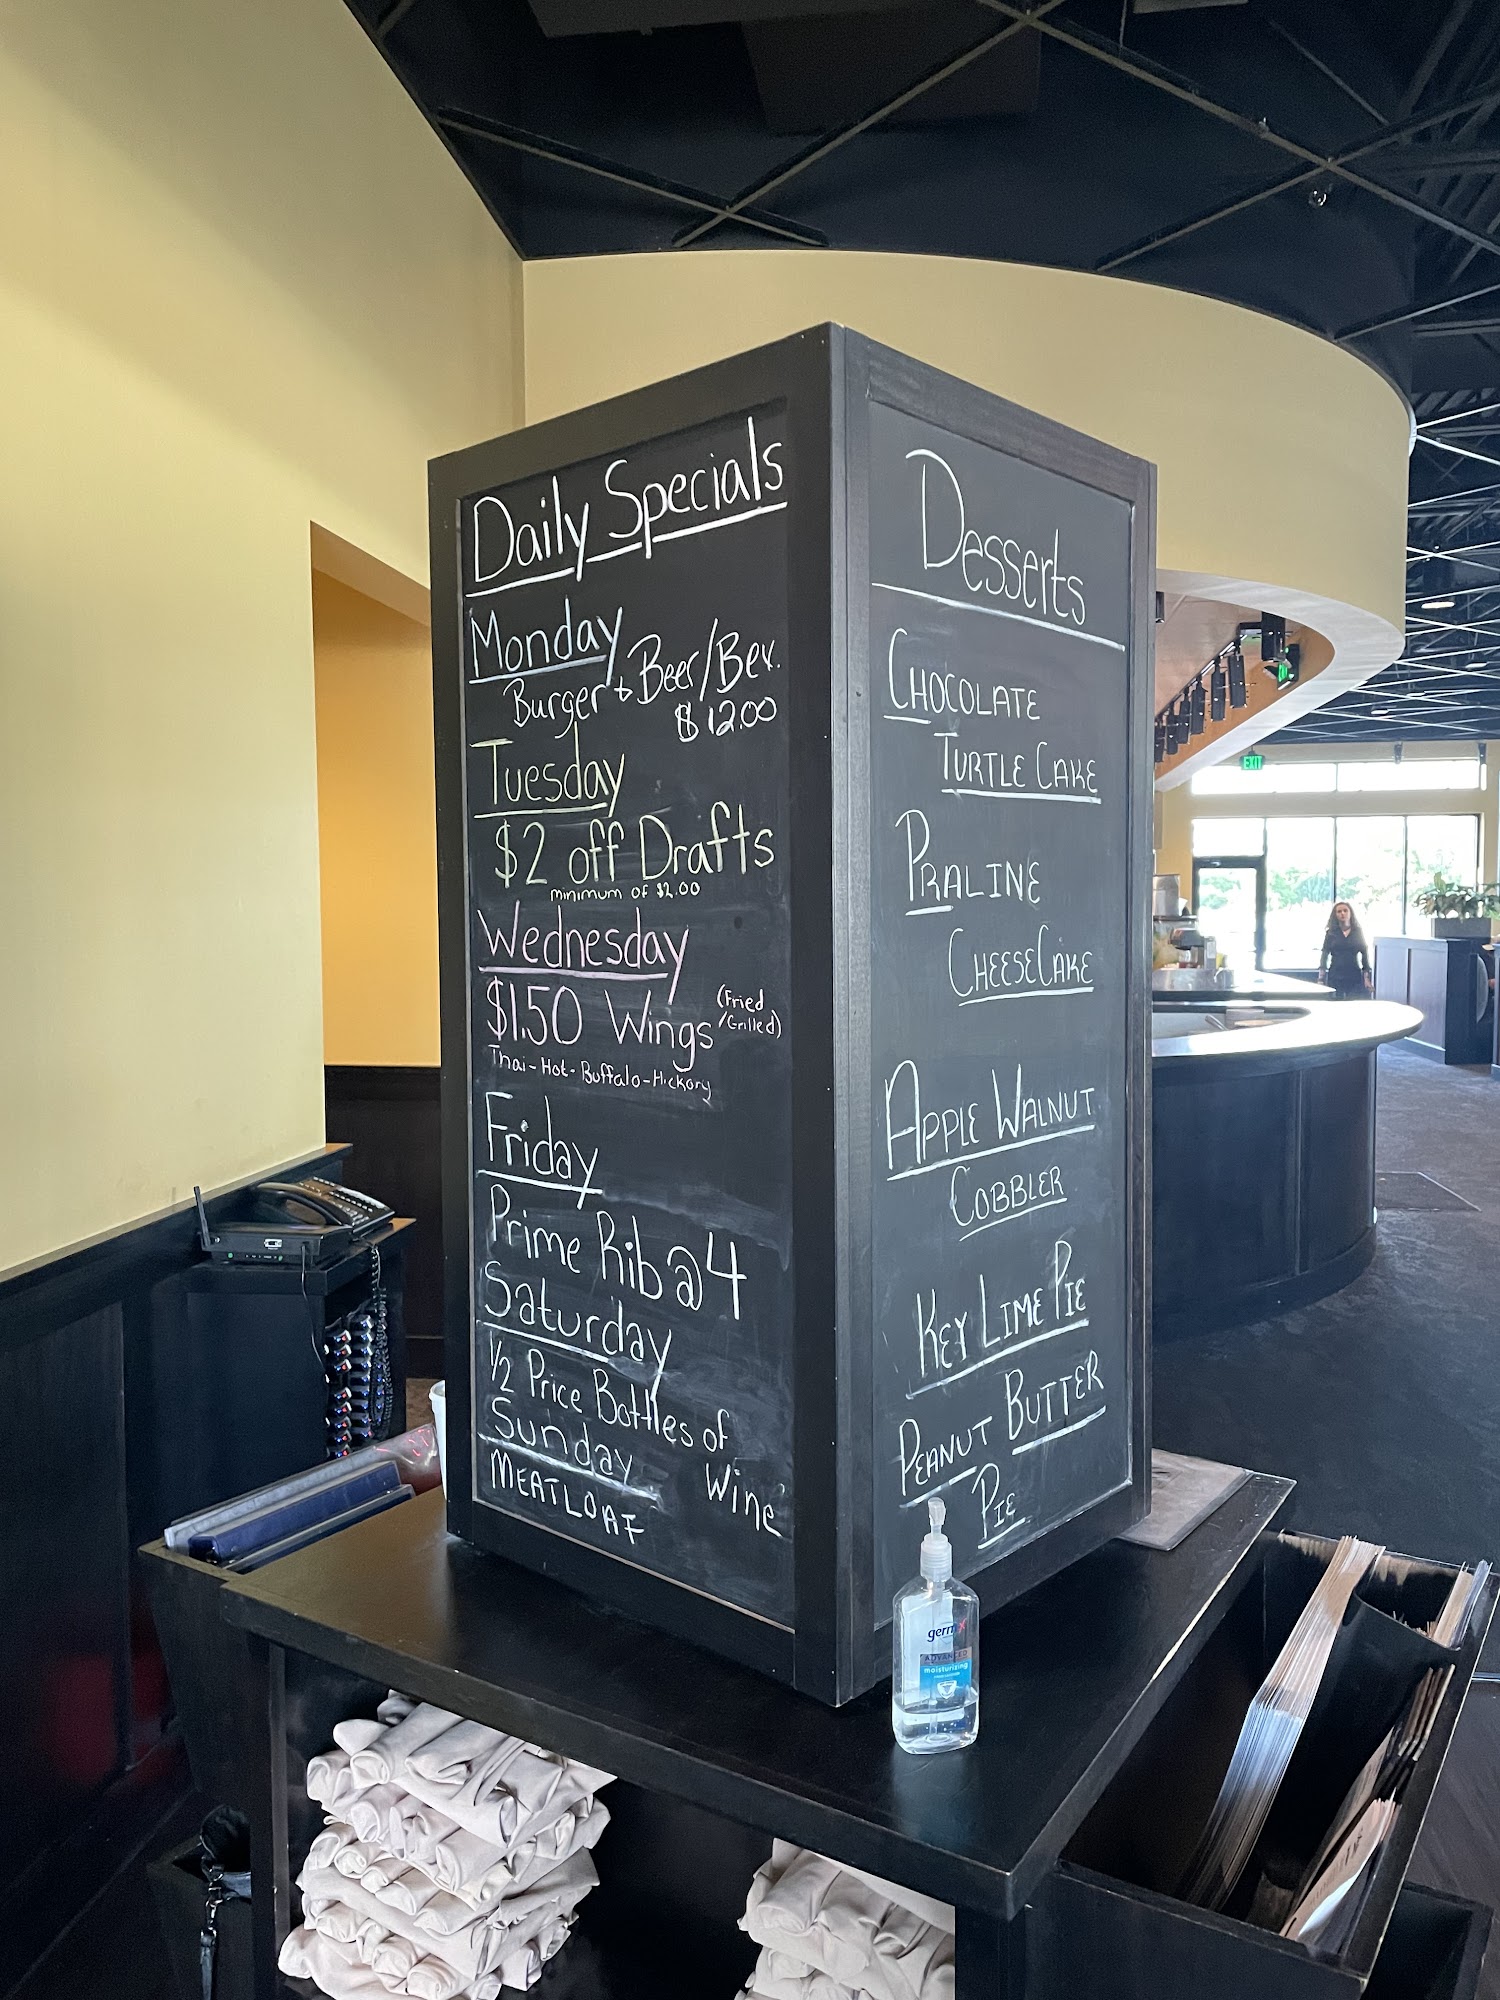 Daily Specials
Monday
Burger + Beer/Bev.
$12.00
Tuesday
$2 off Drafts
minimum of $2.00
Wednesday
$1.50 Wings (Fried
/Grilled)
Thai-Hot-Buffalo-Hickory
Friday
Prime Rib @ 4
Saturday
1/2 Price Bottles of
Wine
Sunday
MEATLOAF
Desserts
CHOCOLATE
TURTLE CAKE
PRALINE
CHEESECAKE
APPLE WALNUT
COBBLER
KEY LIME PIE
PEANUT BUTTER
PIE
EXIT
germ-x
ADVANCED
moisturizing